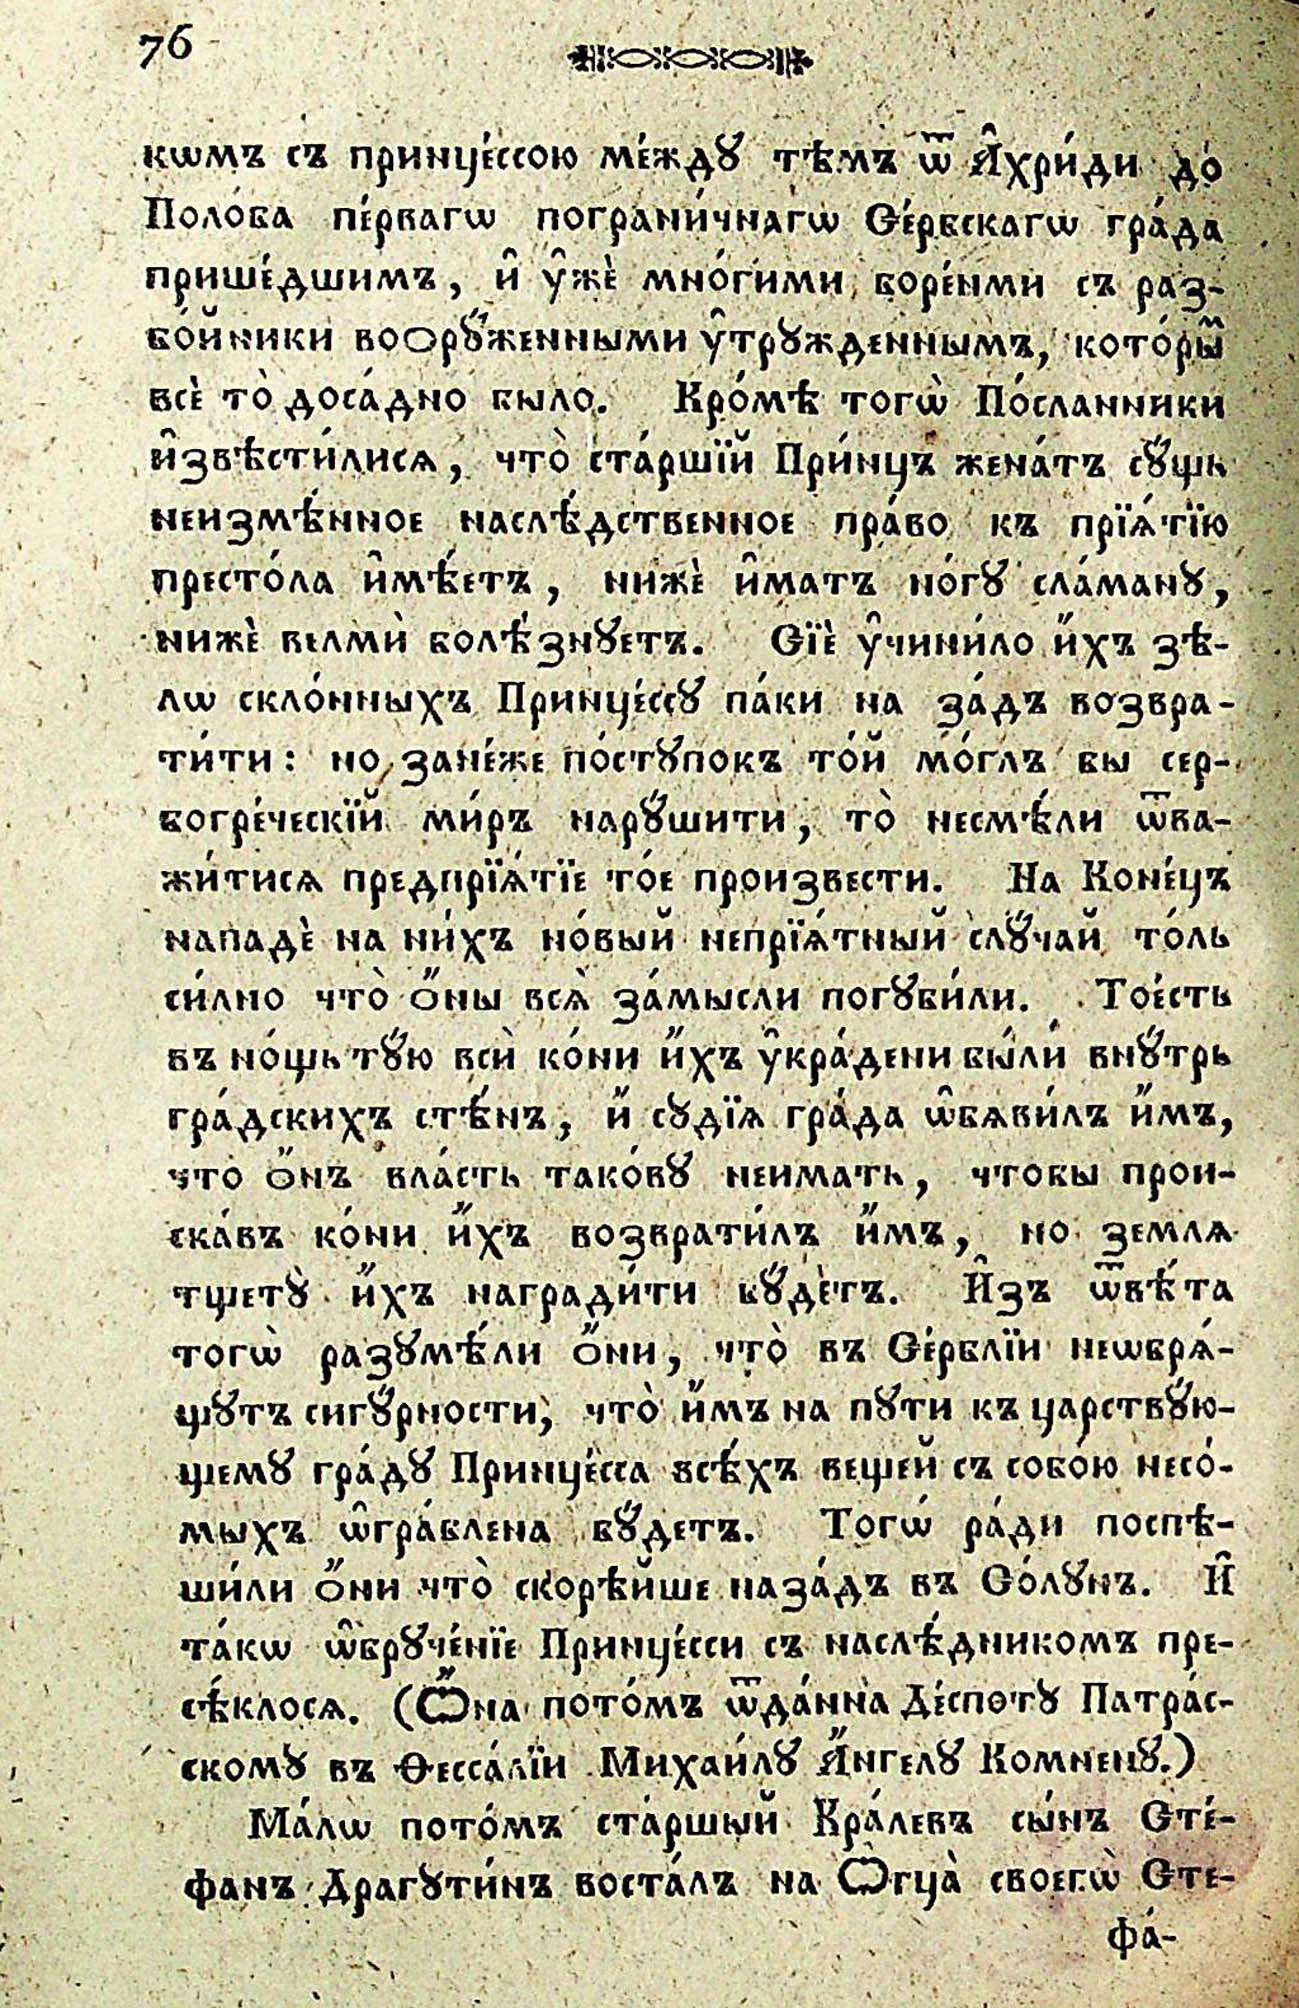 76
кѡмъ съ принце́ссою ме́ждꙋ тѣмъ ѿ А҆хри́ди до́
Поло́ва пе́рвагѡ пограни́чнагѡ Се́рбскагѡ гра́да
прише́дшимъ, и҆ у҆жѐ мно́гими боре́ньми съ раз-
бо́йники воорꙋ́женными у҆трꙋжденнымъ, кото́рыⷨ
всѐ то̀ доса́дно было. Кро́мѣ тогѡ̀ По́сланники
и҆звѣсти́лися, что̀ ста́ршїй При́нцъ жена́тъ сꙋ́щь
неизмѣ́нное наслѣ́дственное пра́во къ прїѧ́тїю
престо́ла и҆мѣ́етъ, нижѐ и҆матъ но́гꙋ сла́манꙋ,
нижѐ велмѝ болѣ́знꙋетъ. Сїѐ у҆чини́ло и҆́хъ зѣ-
лѡ скло́нныхъ Принце́ссꙋ па́ки на за́дъ возвра-
ти́ти: но зане́же по́стꙋпокъ то́й мо́глъ бы сер-
богре́ческїй ми́ръ нарꙋ́шити, то̀ несмѣ́ли ѿва-
жи́тисѧ предпрїѧ́тїе то́е произвести. На Коне́цъ
нападѐ на ни́хъ но́вый непрїѧ́тный слꙋ́чай то́ль
си́лно что̀ ѻ҆́ны всѧ̀ за́мысли погꙋби́ли. Тое́сть
въ но́щь тꙋ́ю всѝ ко́ни и҆́хъ у҆кра́дени бы́ли внꙋ́трь
гра́дскихъ стѣ́нъ, и҆́ сꙋдїѧ гра́да ѡ҆бѧви́лъ и҆́мъ,
что ѻ҆́нъ вла́сть тако́вꙋ неимать, чтобы прои-
ска́въ ко́ни и҆́хъ возврати́лъ и҆́мъ, но землѧ
тщетꙋ̀ и҆́хъ награди́ти бꙋ́детъ. И҆зъ ѿвѣ́та
тогѡ̀ разꙋмѣ́ли ѻ҆́ни, что̀ въ Се́рблїи неѡбрѧ́-
щꙋтъ сигꙋ́рности, что̀ и҆́мъ на пꙋти къ царствꙋ́ю-
щемꙋ гра́дꙋ Принце́сса всѣ́хъ вещей съ собо́ю несо́-
мыхъ ѡ҆гра́блена бꙋ́детъ. Тогѡ́ ра́ди поспѣ-
ши́ли ѻ҆́ни что̀ скорѣ́йше наза́дъ въ Со́лꙋнъ. И҆
та́кѡ ѡ҆брꙋче́нїе Принце́сси съ наслѣ́дникомъ пре-
сѣ́клося. (Ѻ҆́на пото́мъ ѿда́нна Де́спотꙋ Патра́с-
скомꙋ въ Ѳесса́лїи Михаи́лꙋ А҆́нгелꙋ Комненꙋ.)
Ма́лѡ пото́мъ ста́ршый Кра́левъ сы́нъ Сте́-
фанъ Драгꙋти́нъ воста́лъ на Ѻтца̀ своегѡ̀ Сте-
фа́-